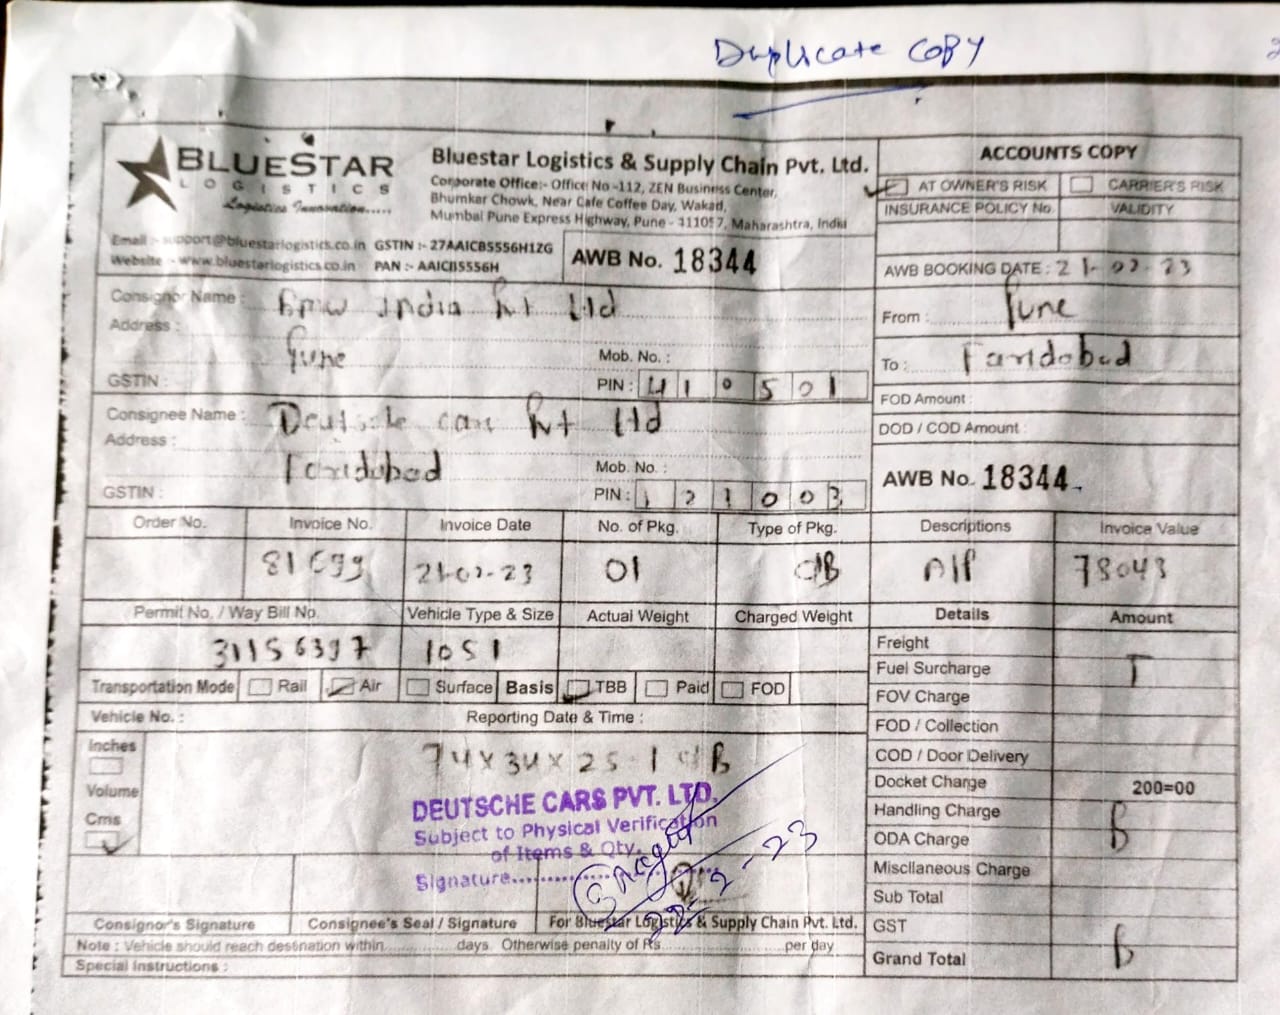 Duplicate COPY
BLUESTAR
LOGISTICS
Logistics Innovation.....
Bluestar Logistics & Supply Chain Pvt. Ltd.
Corporate Office:- Office No -112, ZEN Business Center,
Bhumkar Chowk, Near Cafe Coffee Day, Wakad,
Mumbai Pune Express Highway, Pune - 411057, Maharashtra, India
Email :- support@bluestarlogistics.co.in GSTIN :- 27AAICB5556H1ZG
Website :- www.bluestarlogistics.co.in PAN :- AAICB5556H
AWB No. 18344
ACCOUNTS COPY
AT OWNER'S RISK CARRIER'S RISK
INSURANCE POLICY No. VALIDITY
AWB BOOKING DATE : 21-02-23
From : Pune
To : Faridabad
FOD Amount :
DOD / COD Amount :
AWB No. 18344
Consignor Name : BMW India Pvt Ltd
Address :
Pune
Mob. No. :
GSTIN : PIN : 410501
Consignee Name : Deutsche cars Pvt Ltd
Address :
Faridabad
Mob. No. :
GSTIN : PIN : 121003
Order No. Invoice No. Invoice Date No. of Pkg. Type of Pkg. Descriptions Invoice Value
81699 21-02-23 01 C/B A/P 78043
Permit No. / Way Bill No. Vehicle Type & Size Actual Weight Charged Weight Details Amount
31156397 1051
Transportation Mode Rail Air Surface Basis TBB Paid FOD
Vehicle No. : Reporting Date & Time :
Inches
Volume
Cms
74x34x25-1 C/B
DEUTSCHE CARS PVT. LTD.
Subject to Physical Verification
of Items & Qty.
Signature..............
22-2-23
Freight
Fuel Surcharge T
FOV Charge
FOD / Collection
COD / Door Delivery
Docket Charge 200=00
Handling Charge B
ODA Charge
Miscllaneous Charge
Sub Total
GST
Grand Total B
Consignor's Signature Consignee's Seal / Signature For Bluestar Logistics & Supply Chain Pvt. Ltd.
Note : Vehicle should reach destination within.............. days Otherwise penalty of Rs..............per day
Special Instructions :